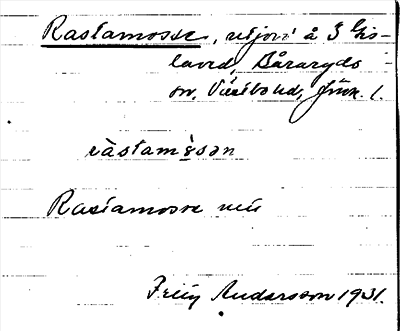 Rastamosse, utjord å 3 Gis-
laved, Båraryds
sn, Västbo hd, Jönk. l.
ràstamɷ̀sən
Rastamosse
Andersson 1931.